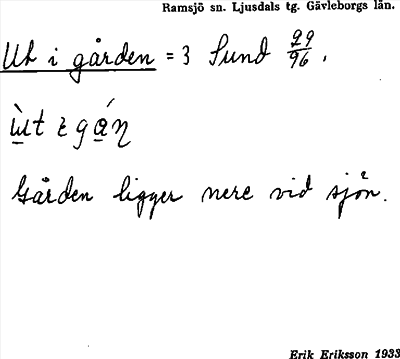 Ramsjö sn. Ljusdals tg. Gävleborgs län.
Ut i gården = 3 Sund 29/96.
Gården ligger nere vid sjön.
Erik Eriksson 1933